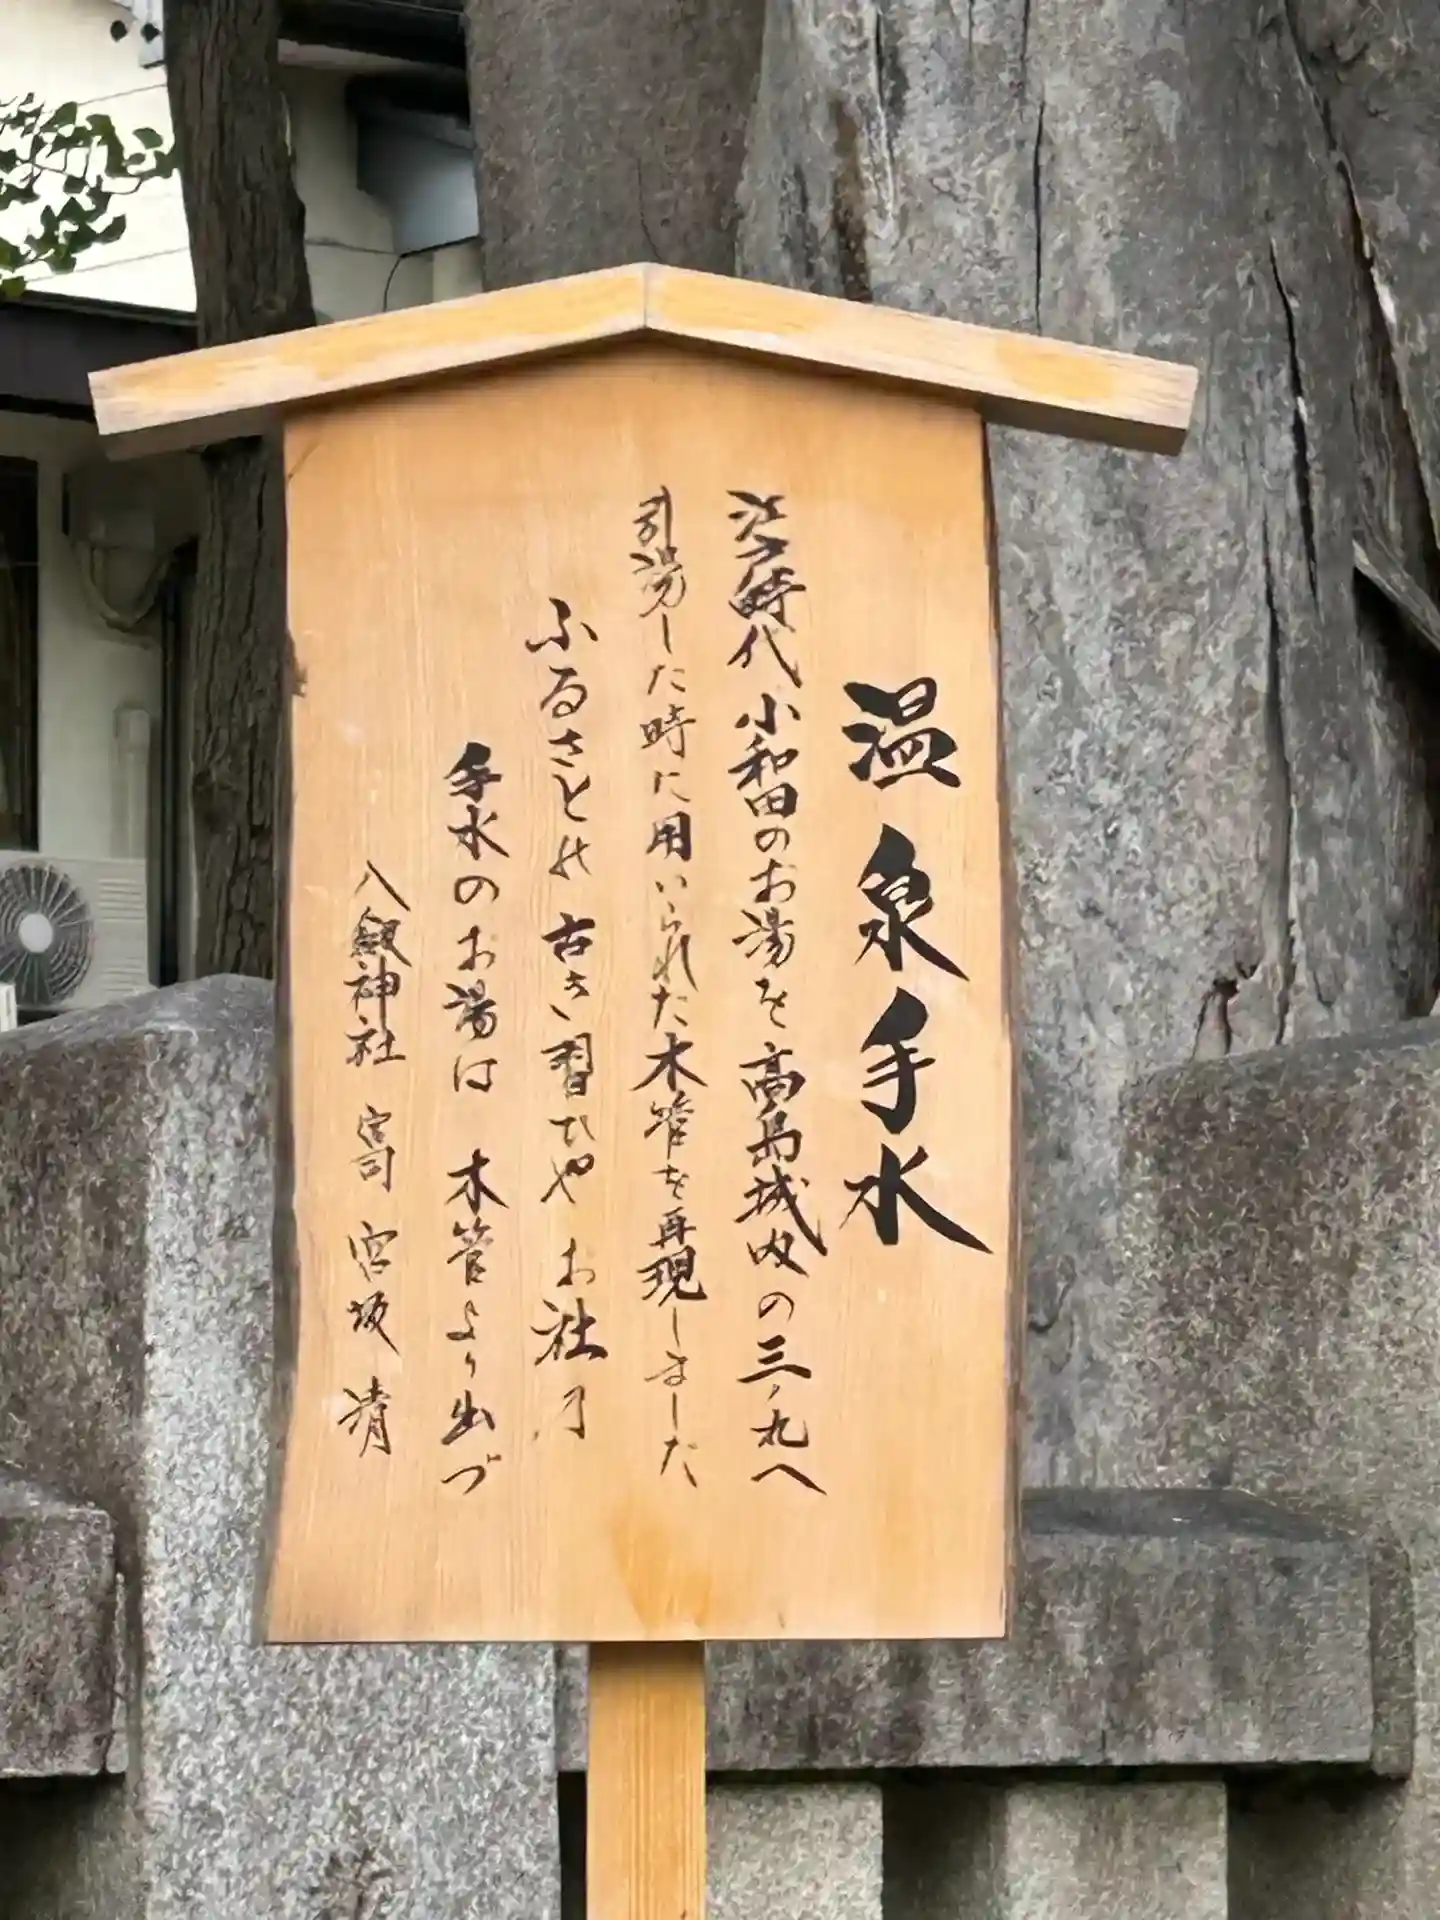 温泉手水
江戸時代 小和田のお湯を高島城内の三ノ丸へ
引湯した時に用いられた木管を再現しました
ふるさとの 古き習ひや お社乃
手水のお湯は 木管より出づ
八剱神社 宮司 宮坂 清